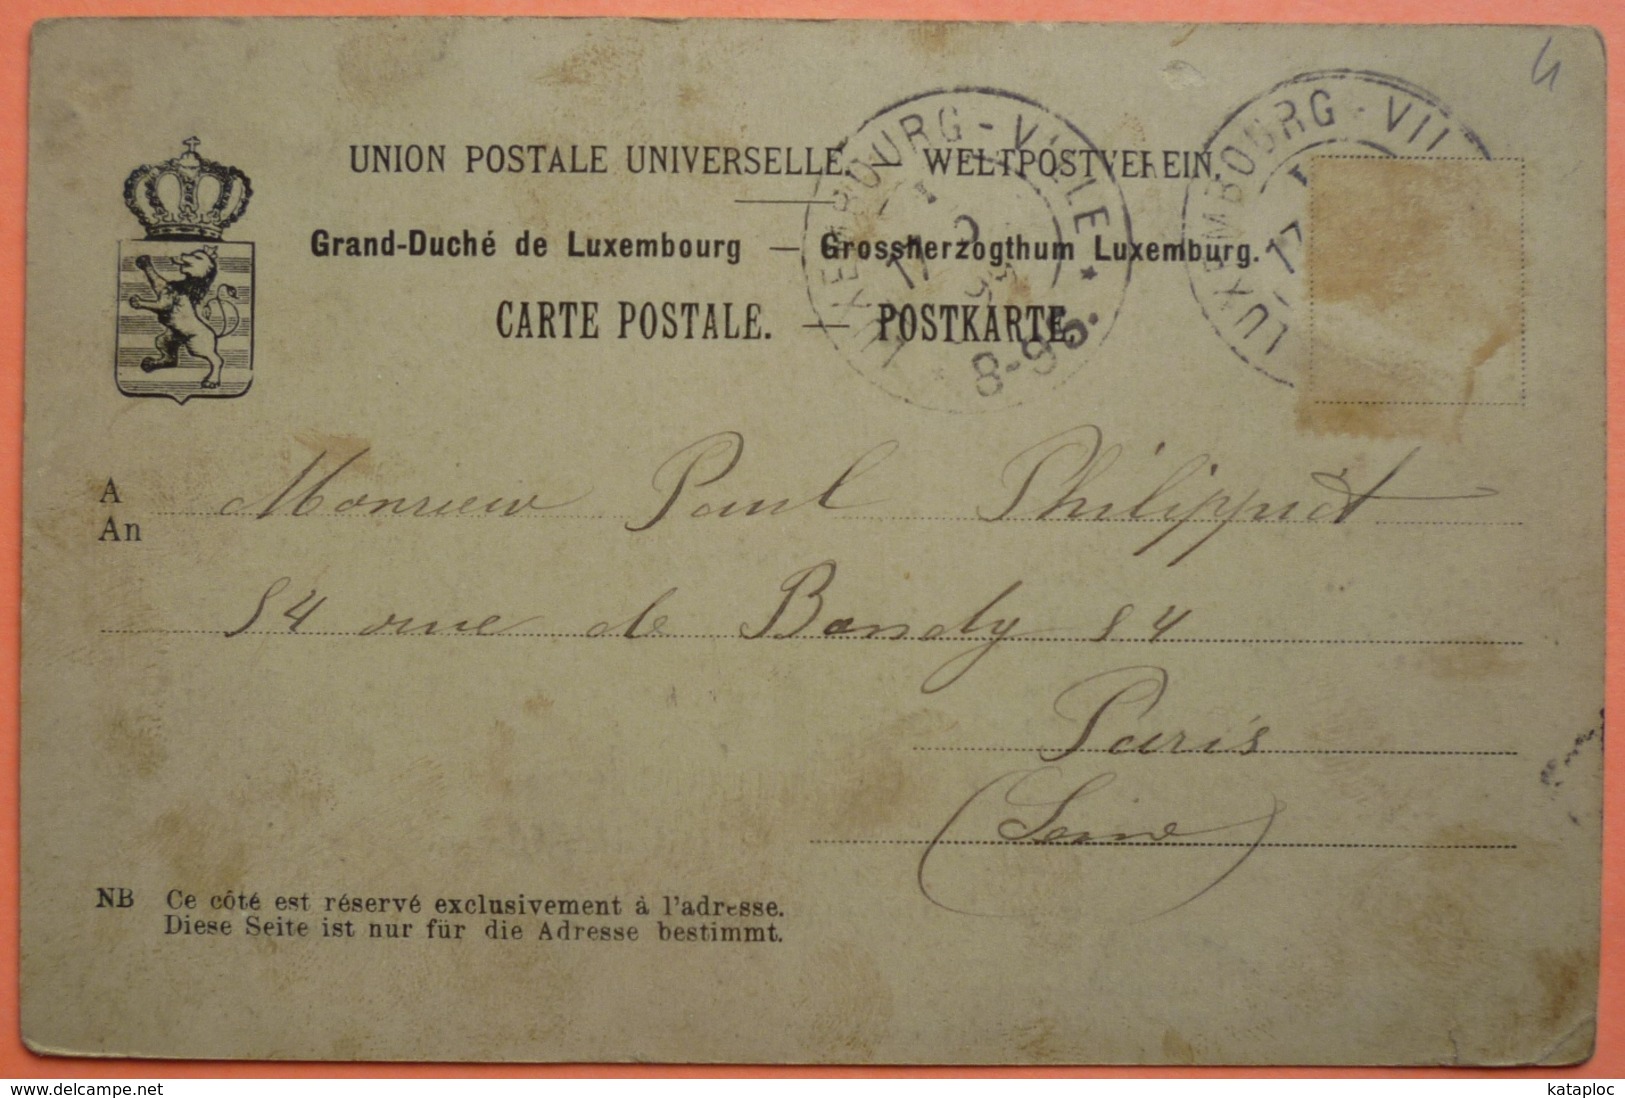 UNION POSTALE UNIVERSELLE. — WELTPOSTVEREIN.
Grand-Duché de Luxembourg — Grossherzogthum Luxemburg.
CARTE POSTALE. — POSTKARTE.
LUXEMBOURG-VILLE *
8-9S.
LUXEMBOURG-VIL
17
A
An
Monsieur Paul Philippot
54 rue de Bondy 54
Paris
(Seine)
NB Ce côté est réservé exclusivement à l'adresse.
Diese Seite ist nur für die Adresse bestimmt.
www.delcampe.net
kataploc